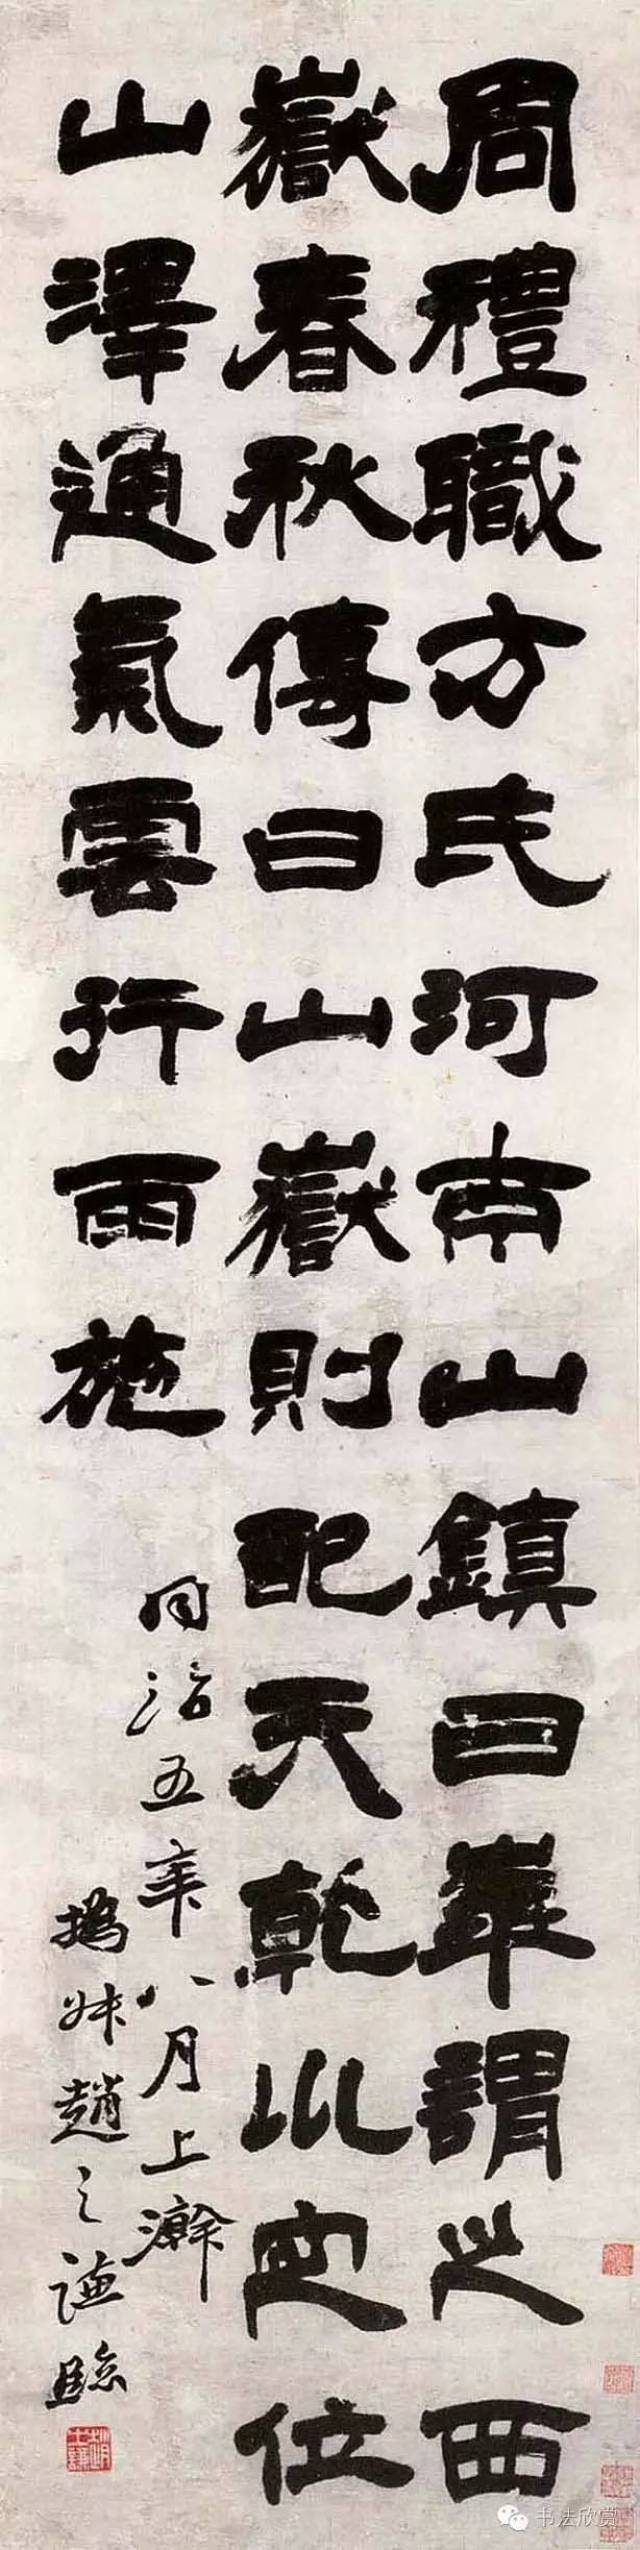 周禮職方氏河南山鎮曰華謂之西
嶽春秋傳曰山嶽則配天乾川定位
山澤通氣雲行雨施
同治五年八月上澣
撝叔趙之謙臨
书法欣赏